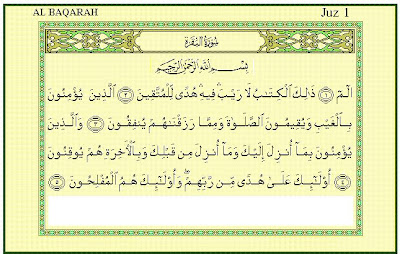 AL BAQARAH
Juz 1
سُورَةُ الْبَقَرَة
بِسْمِ اللَّهِ الرَّحْمَٰنِ الرَّحِيمِ
الٓمٓ ۝١ ذَٰلِكَ ٱلْكِتَٰبُ لَا رَيْبَ ۛ فِيهِ ۛ هُدًى لِّلْمُتَّقِينَ ۝٢ ٱلَّذِينَ يُؤْمِنُونَ
بِٱلْغَيْبِ وَيُقِيمُونَ ٱلصَّلَوٰةَ وَمِمَّا رَزَقْنَٰهُمْ يُنفِقُونَ ۝٣ وَٱلَّذِينَ
يُؤْمِنُونَ بِمَآ أُنزِلَ إِلَيْكَ وَمَآ أُنزِلَ مِن قَبْلِكَ وَبِٱلْأَخِرَةِ هُمْ يُوقِنُونَ
۝٤ أُو۟لَٰٓئِكَ عَلَىٰ هُدًى مِّن رَّبِّهِمْ ۖ وَأُو۟لَٰٓئِكَ هُمُ ٱلْمُفْلِحُونَ ۝٥